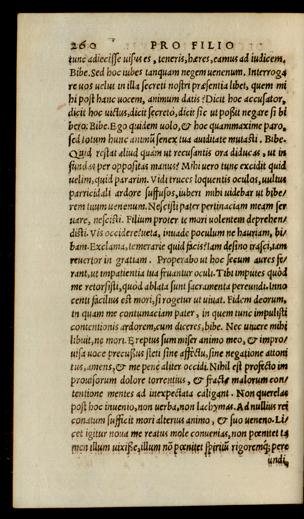 260 PRO FILIO
tunc adiecisse uisus es, teneris, hæres, eamus ad iudicem.
Bibe. Sed hoc iubes tanquam negem uenenum. Interroga
re uos uelut in illa secreti nostri præsentia libet, quem mi
hi post hanc uocem, animum datis? Dicit hoc accusator,
dicit hoc uictus, dicit secreto, dicit sic ut poßit negare si bi
bero. Bibe. Ego quidem uolo, & hoc quammaxime paro,
sed totum hunc animũ senex tua auditate mutasti. Bibe.
Quid restat aliud quàm ut recusantis ora diducas, ut in
fundas per oppositas manus? Mihi uero tunc excidit quid
uelim, quid pararim. Vidi truces loquentis oculos, uultus
parricidali ardore suffusos, iuberi mihi uidebar ut bibe/
rem tuum uenenum. Nescijsti pater pertinaciam meam ser
uare, nescisti. Filium propter te mori uolentem deprehen/
disti. Vis occidere? ueta, inuade poculum ne hauriam, bi/
bam. Exclama, temerarie quid facis? Iam desino irasci, iam
reuertor in gratiam. Properabo ut hoc secum aures fe/
rant, ut impatientia tua fruantur oculi. Tibi imputes quòd
me retorsisti, quòd ablata sunt sacramenta pereundi. Inno
centi facilius est mori, si rogetur ut uiuat. Fidem deorum,
in quam me contumaciam pater, in quem tunc impulisti
contentionis ardorem, cum diceres, bibe. Nec uiuere mihi
libuit, nec mori. Ereptus sum miser animo meo, & impro/
uisa uoce precussus steti sine affectu, sine negatione attoni
tus, amens, & me penè aliter occidi. Nihil est profectò im
prouisorum dolore torrentius, & fractæ malorum con/
tentione mentes ad inexpectata caligant. Non querelas
post hoc inuenio, non uerba, non lachrymas. Ad nullius rei
conatum sufficit mori alterius animo, & suo ueneno. Li/
cet igitur noua me reatus mole conuenias, non pœnitet ta
men illum uixisse, illum nõ pœnitet spiritũ rigoremq́; pere
undi,